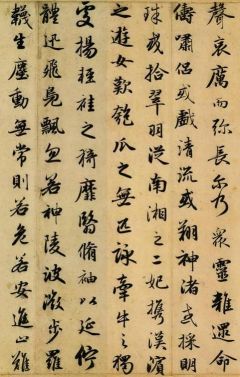 聲哀厲而弥長尒乃衆靈雜遝命
儔嘯侣或戲清流或翔神渚或採明
珠或拾翠羽從南湘之二妃攜漢濱
之遊女歎匏瓜之無匹詠牽牛之獨
處揚輕袿之猗靡翳脩袖以延佇
體迅飛鳧飄忽若神陵波微步羅
韈生塵動無常則若危若安進止難